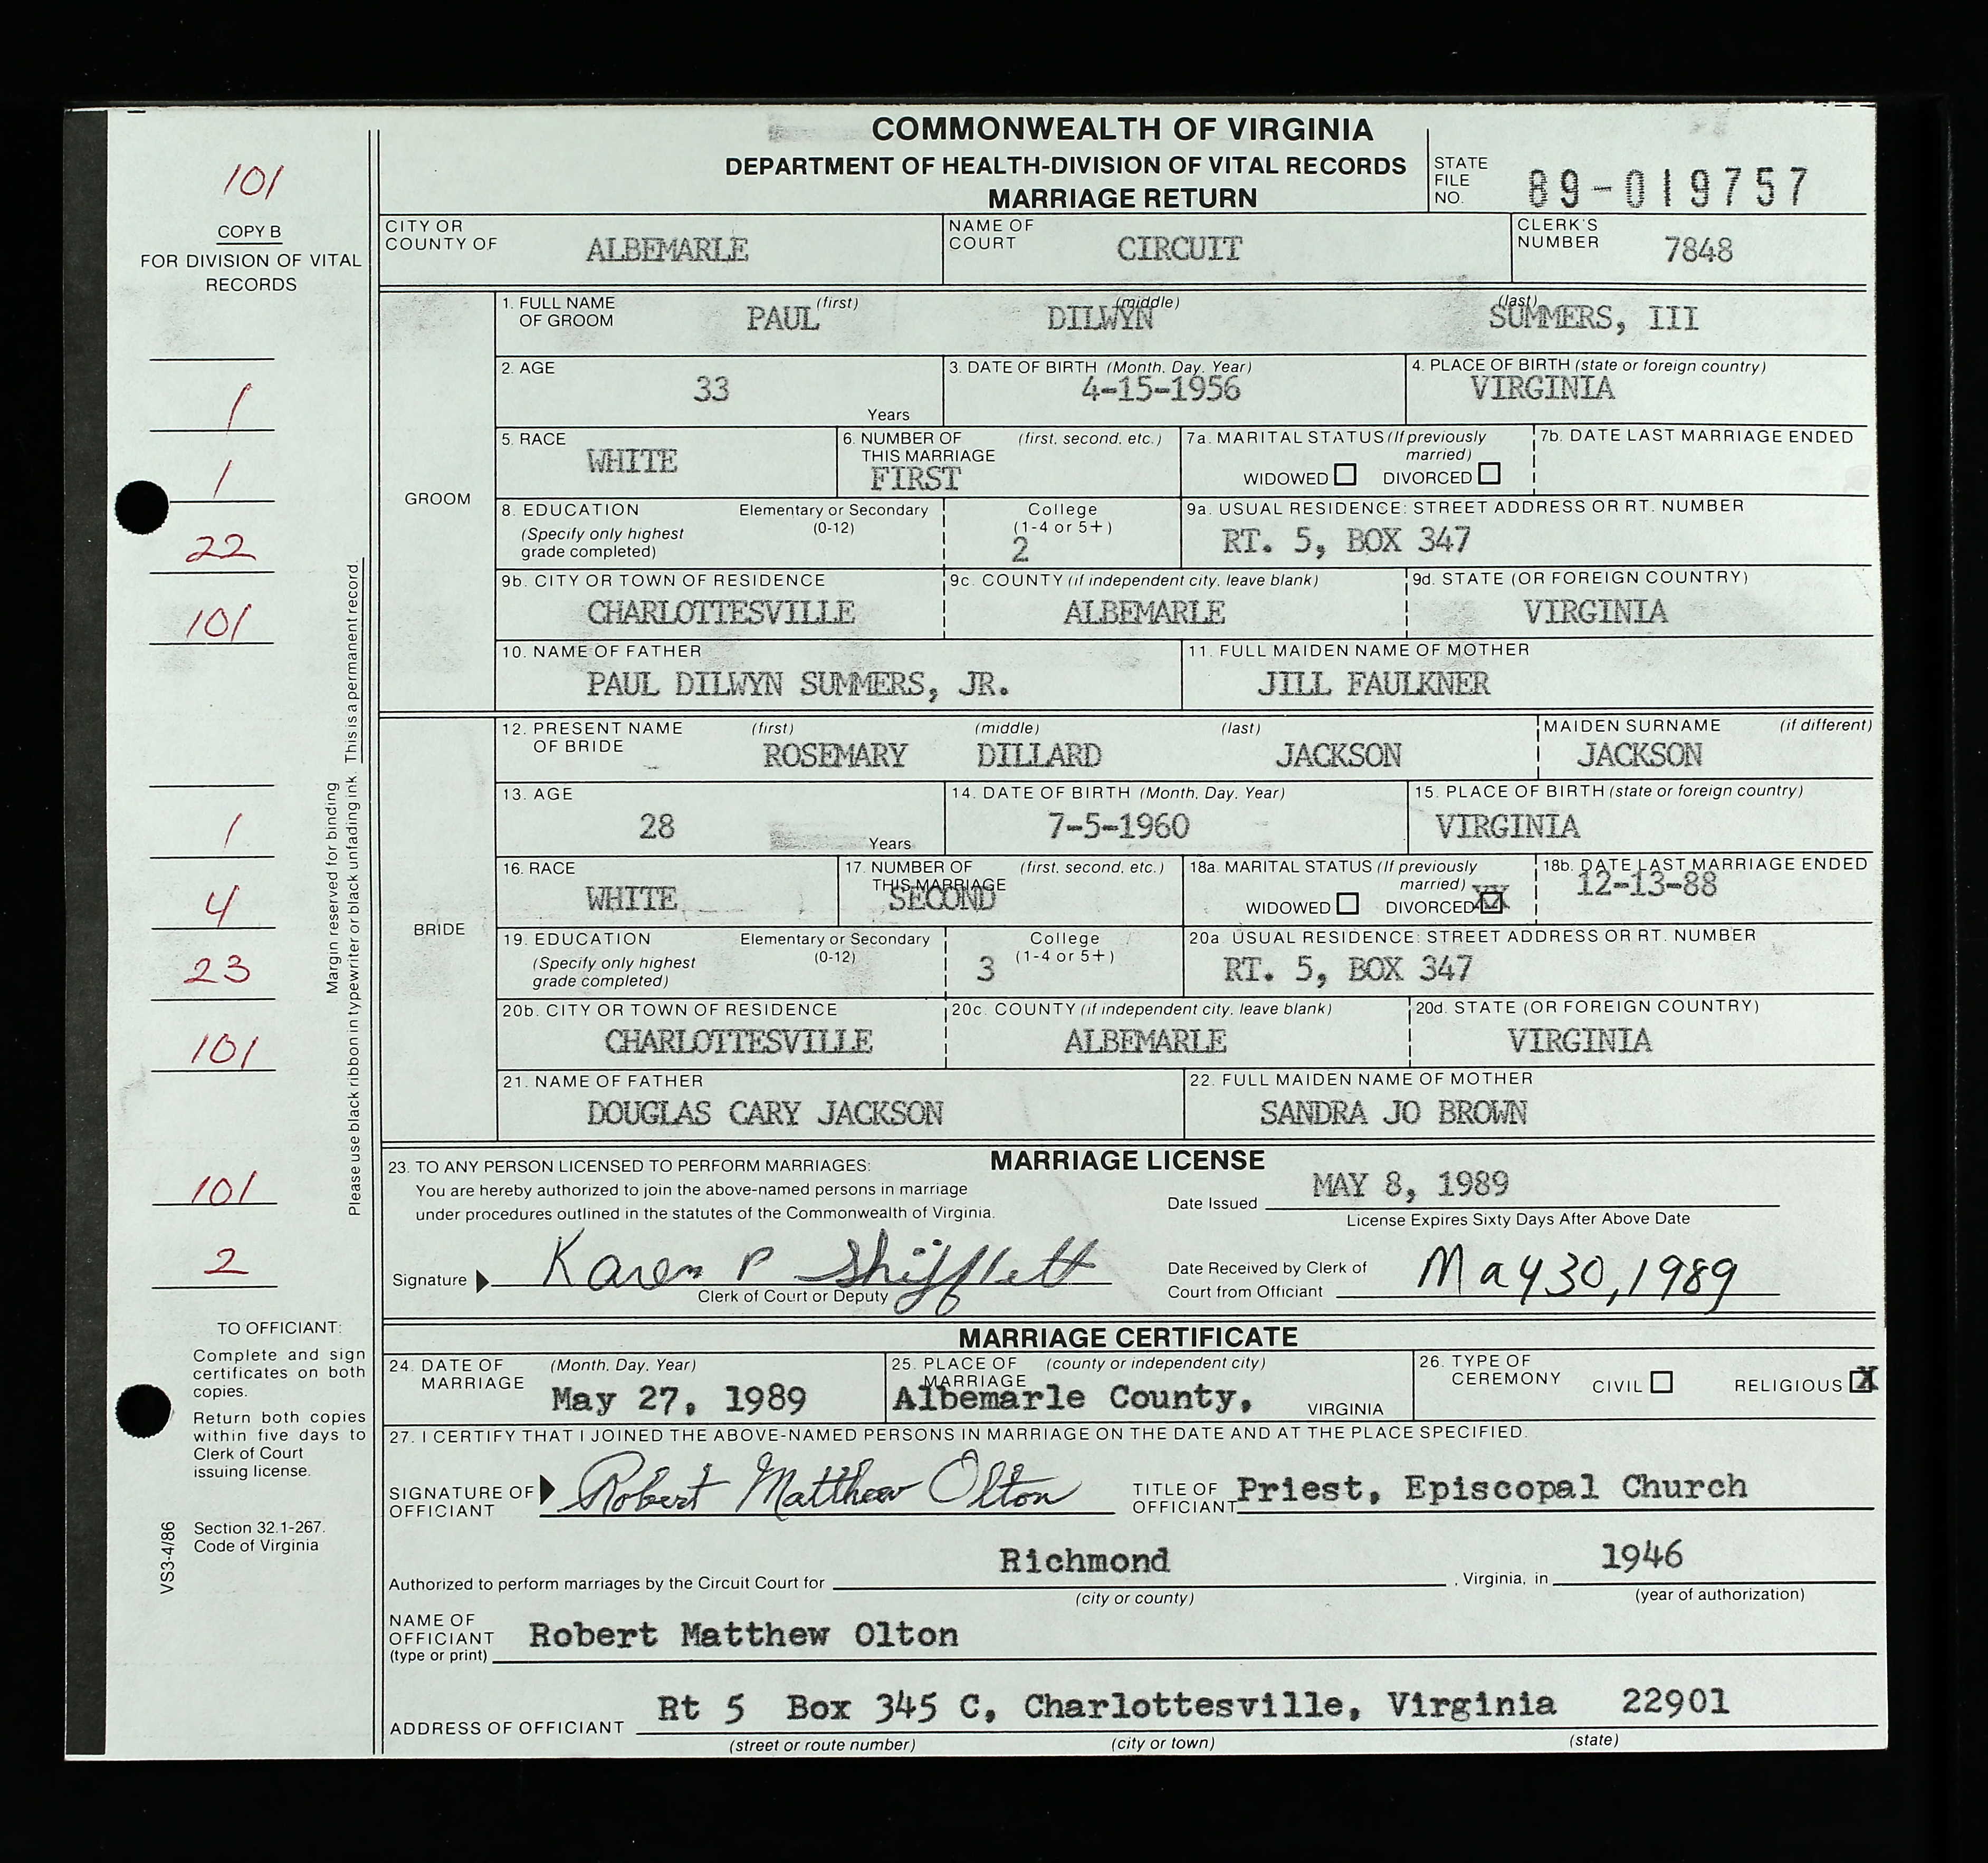 COMMONWEALTH OF VIRGINIA
DEPARTMENT OF HEALTH-DIVISION OF VITAL RECORDS
MARRIAGE RETURN
STATE FILE NO. 89-019757
101
COPY B
FOR DIVISION OF VITAL RECORDS
CITY OR COUNTY OF ALBEMARLE
NAME OF COURT CIRCUIT
CLERK'S NUMBER 7848
GROOM
1. FULL NAME OF GROOM (first) PAUL (middle) DILWYN (last) SUMMERS, III
2. AGE 33 Years
3. DATE OF BIRTH (Month, Day, Year) 4-15-1956
4. PLACE OF BIRTH (state or foreign country) VIRGINIA
5. RACE WHITE
6. NUMBER OF THIS MARRIAGE (first, second, etc.) FIRST
7a. MARITAL STATUS (If previously married) WIDOWED DIVORCED
7b. DATE LAST MARRIAGE ENDED
8. EDUCATION (Specify only highest grade completed) Elementary or Secondary (0-12) College (1-4 or 5+) 2
9a. USUAL RESIDENCE: STREET ADDRESS OR RT. NUMBER RT. 5, BOX 347
9b. CITY OR TOWN OF RESIDENCE CHARLOTTESVILLE
9c. COUNTY (if independent city, leave blank) ALBEMARLE
9d. STATE (OR FOREIGN COUNTRY) VIRGINIA
10. NAME OF FATHER PAUL DILWYN SUMMERS, JR.
11. FULL MAIDEN NAME OF MOTHER JILL FAULKNER
BRIDE
12. PRESENT NAME OF BRIDE (first) ROSEMARY (middle) DILLARD (last) JACKSON
MAIDEN SURNAME (if different) JACKSON
13. AGE 28 Years
14. DATE OF BIRTH (Month, Day, Year) 7-5-1960
15. PLACE OF BIRTH (state or foreign country) VIRGINIA
16. RACE WHITE
17. NUMBER OF THIS MARRIAGE (first, second, etc.) SECOND
18a. MARITAL STATUS (If previously married) WIDOWED DIVORCED XX
18b. DATE LAST MARRIAGE ENDED 12-13-88
19. EDUCATION (Specify only highest grade completed) Elementary or Secondary (0-12) College (1-4 or 5+) 3
20a. USUAL RESIDENCE: STREET ADDRESS OR RT. NUMBER RT. 5, BOX 347
20b. CITY OR TOWN OF RESIDENCE CHARLOTTESVILLE
20c. COUNTY (if independent city, leave blank) ALBEMARLE
20d. STATE (OR FOREIGN COUNTRY) VIRGINIA
21. NAME OF FATHER DOUGLAS CARY JACKSON
22. FULL MAIDEN NAME OF MOTHER SANDRA JO BROWN
MARRIAGE LICENSE
23. TO ANY PERSON LICENSED TO PERFORM MARRIAGES:
You are hereby authorized to join the above-named persons in marriage
under procedures outlined in the statutes of the Commonwealth of Virginia.
Date Issued MAY 8, 1989
License Expires Sixty Days After Above Date
Signature Karen P Shifflett
Clerk of Court or Deputy
Date Received by Clerk of Court from Officiant May 30, 1989
MARRIAGE CERTIFICATE
24. DATE OF MARRIAGE (Month, Day, Year) May 27, 1989
25. PLACE OF MARRIAGE (county or independent city) Albemarle County, VIRGINIA
26. TYPE OF CEREMONY CIVIL RELIGIOUS X
27. I CERTIFY THAT I JOINED THE ABOVE-NAMED PERSONS IN MARRIAGE ON THE DATE AND AT THE PLACE SPECIFIED.
SIGNATURE OF OFFICIANT Robert Matthew Olton
TITLE OF OFFICIANT Priest, Episcopal Church
Authorized to perform marriages by the Circuit Court for Richmond, Virginia, in 1946
(city or county) (year of authorization)
NAME OF OFFICIANT (type or print) Robert Matthew Olton
ADDRESS OF OFFICIANT Rt 5 Box 345 C, Charlottesville, Virginia 22901
(street or route number) (city or town) (state)
1
1
22
101
1
4
23
101
101
2
Margin reserved for binding
Please use black ribbon in typewriter or black unfading ink. This is a permanent record.
TO OFFICIANT:
Complete and sign
certificates on both
copies.
Return both copies
within five days to
Clerk of Court
issuing license.
Section 32.1-267.
Code of Virginia
VS3-4/86